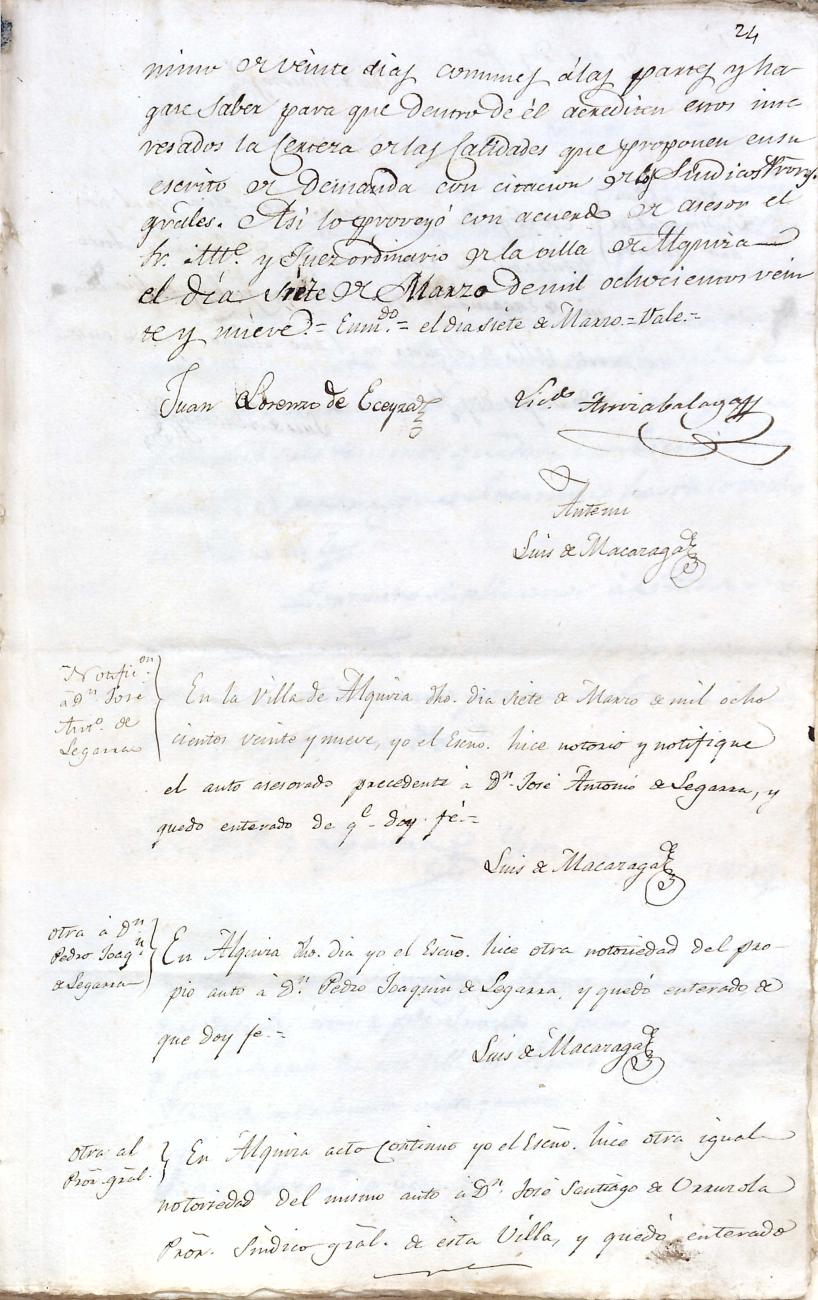 24
mino de veinte dias comunes á las partes y ha-
gase saber para que dentro de él acrediten estos inte-
resados la Certeza de las Calidades que proponen en su
escrito de Demanda con citacion de los Sindicos Prores.
grâles. Asi lo proveyó con acuerdo de asesor el
Sr. Alle y Juez ordinario de la villa de Alquiza
el dia siete de Marzo de mil ochocientos vein
te y nueve.= Enmdo.= el dia siete de Marzo.= Vale.=
Juan Lorenzo de Eceyza
Licdo
Antemi
Luis de Macazaga
Notifion.
á Dn José
Anto. de
Legarra
En la Villa de Alquiza dho. dia siete de Marzo de mil ocho
cientos veinte y nueve, yo el Esno. hice notorio y notifique
el auto asesorado precedente á Dn. José Antonio de Legarra, y
quedo enterado de qe doy fé.=
Luis de Macazaga
otra á Dn
Pedro Joaqn
de Legarra
En Alquiza dho. dia yo el Esno. hice otra notoriedad del pro-
pio auto á Dn. Pedro Joaquin de Legarra, y quedó enterado de
que doy fé.=
Luis de Macazaga
otra al
Prôr. grâl.
En Alquiza acto continuo yo el Esno. hice otra igual
notoriedad del mismo auto á Dn. José Santiago de Urruzola
Prôr. Sindico grâl. de esta Villa, y quedó enterado